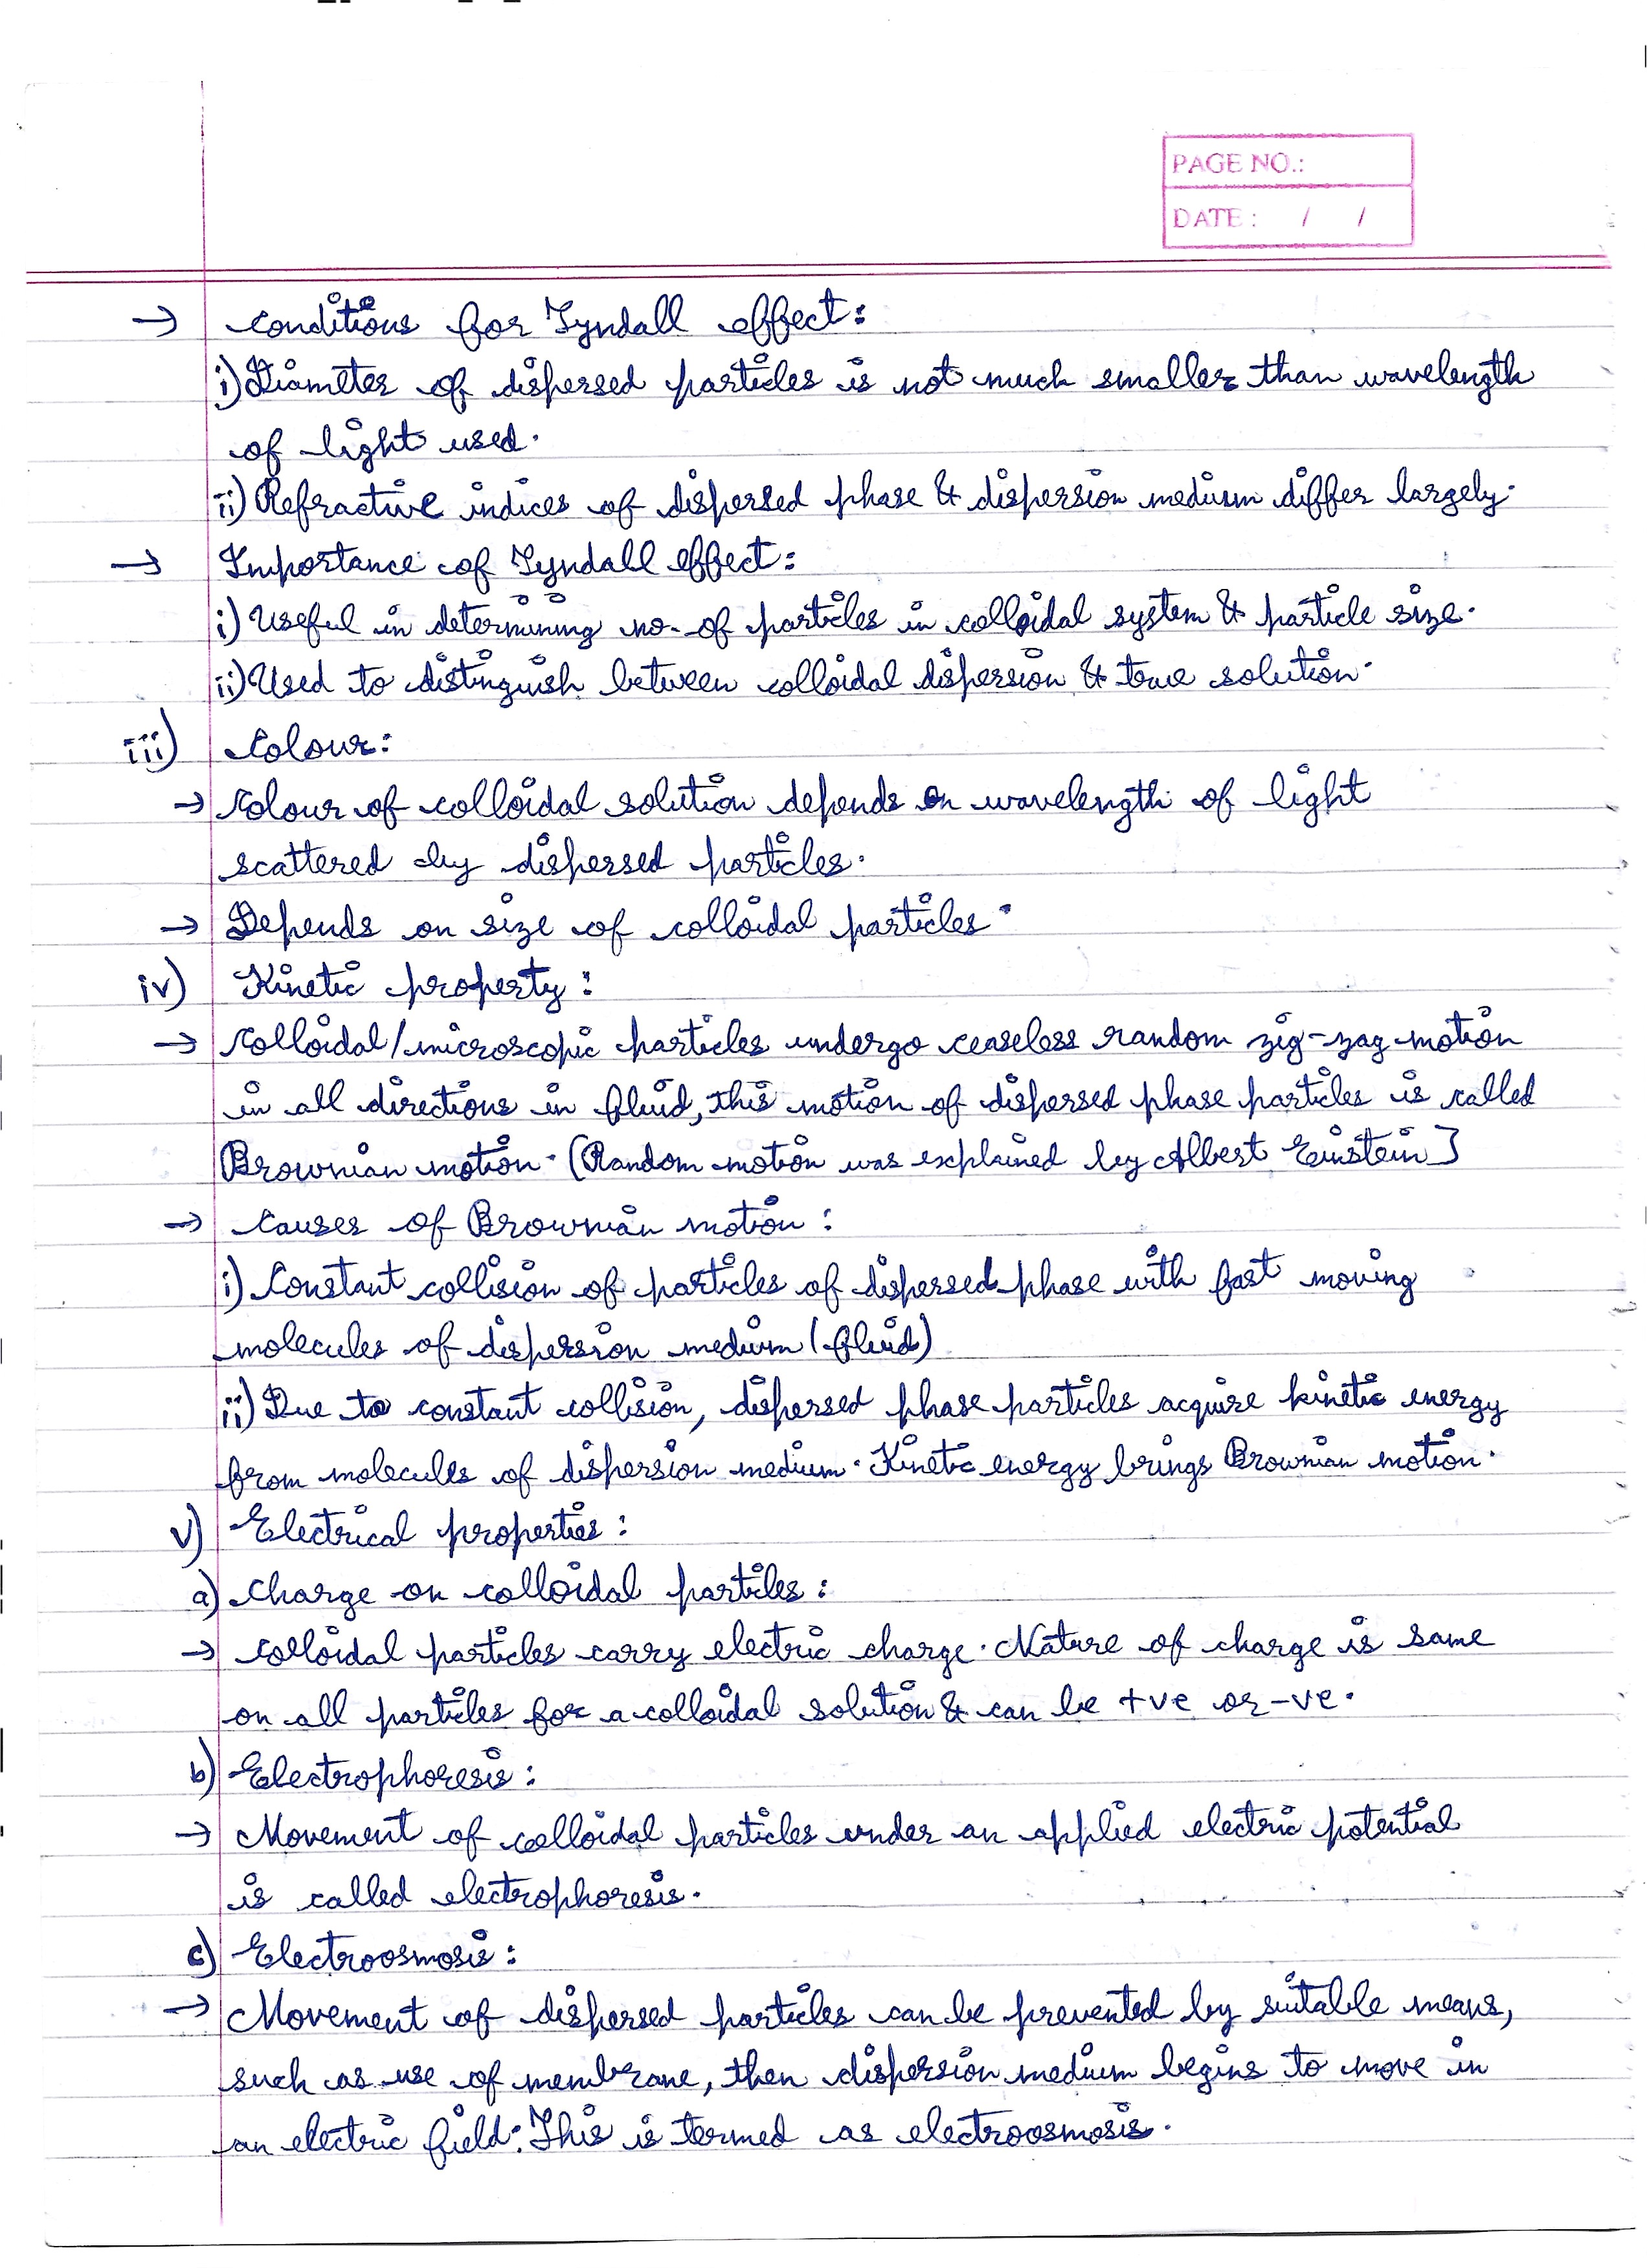 PAGE NO.:
DATE: / /
→ Conditions for Tyndall effect:
i) Diameter of dispersed particles is not much smaller than wavelength
of light used.
ii) Refractive indices of dispersed phase & dispersion medium differ largely.
→ Importance of Tyndall effect:
i) Useful in determining no. of particles in colloidal system & particle size.
ii) Used to distinguish between colloidal dispersion & true solution.
iii) Colour:
→ Colour of colloidal solution depends on wavelength of light
scattered by dispersed particles.
→ Depends on size of colloidal particles.
iv) Kinetic property:
→ Colloidal/microscopic particles undergo ceaseless random zig-zag motion
in all directions in fluid, this motion of dispersed phase particles is called
Brownian motion. (Random motion was explained by Albert Einstein]
→ Causes of Brownian motion:
i) Constant collision of particles of dispersed phase with fast moving
molecules of dispersion medium (fluid)
ii) Due to constant collision, dispersed phase particles acquire kinetic energy
from molecules of dispersion medium. Kinetic energy brings Brownian motion.
v) Electrical properties:
a) Charge on colloidal partiles:
→ Colloidal particles carry electric charge. Nature of charge is same
on all partiles for a colloidal solution & can be +ve or -ve.
b) Electrophoresis:
→ Movement of colloidal particles under an applied electric potential
is called electrophoresis.
c) Electroosmosis:
→ Movement of dispersed particles can be prevented by suitable means,
such as use of membrane, then dispersion medium begins to move in
an electric field. This is termed as electroosmosis.